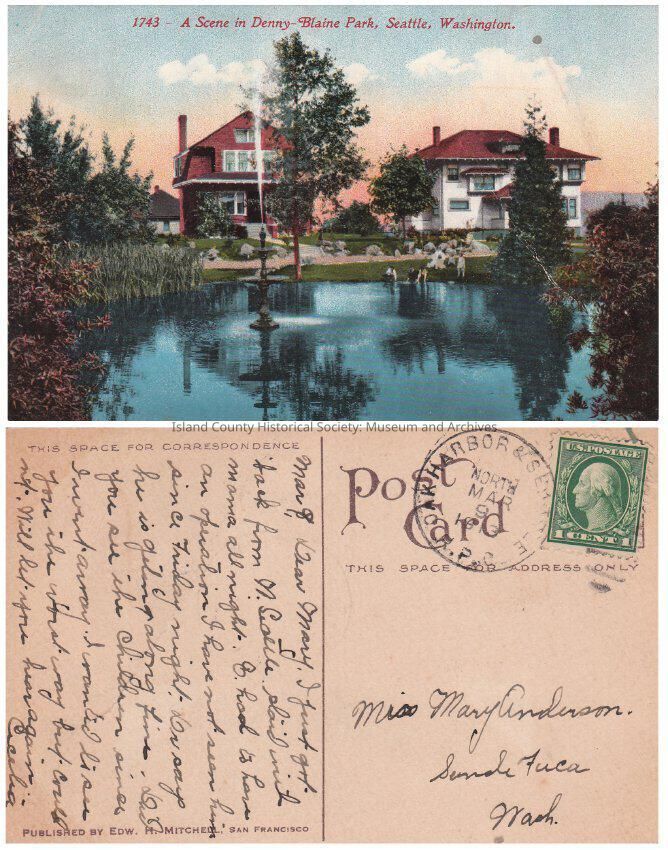 1743 - A Scene in Denny-Blaine Park, Seattle, Washington.
Island County Historical Society: Museum and Archives
THIS SPACE FOR CORRESPONDENCE
Mar 9 Dear Mary, I just got
back from N. Seattle staid with
mama all night. E. had to have
an operation I have not seen him
since Friday night. Dr says
he is getting along fine. Did
you see the children since
I went away. I wanted to see
you the worst way but could
not. Will let you hear again
Cecelia
PUBLISHED BY EDW. H. MITCHELL, SAN FRANCISCO
Post Card
OAK HARBOR & SEATTLE
NORTH
MAR
9
R.P.O.
U.S. POSTAGE
1 CENT 1
THIS SPACE FOR ADDRESS ONLY
Miss Mary Anderson.
Sunde Fuca
Wash.